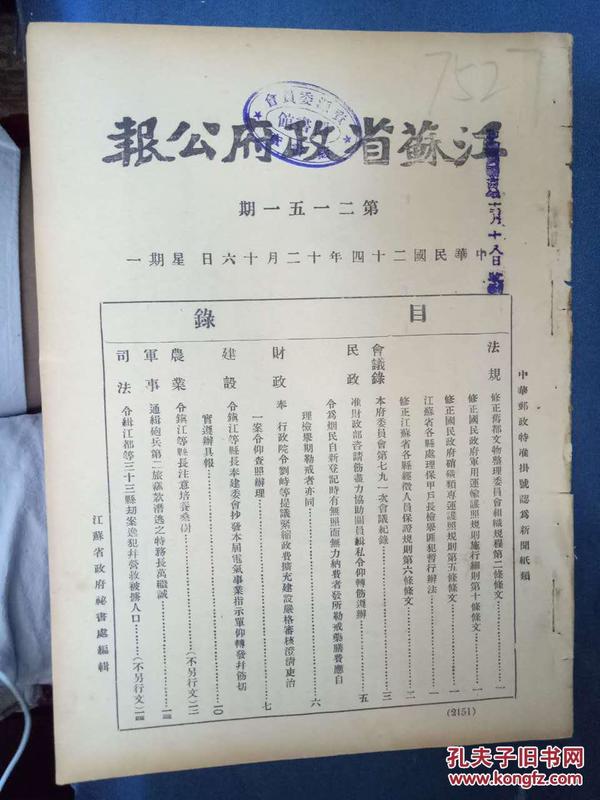 752
江蘇省政府公報
第二一五一期
中華民國二十四年十二月十六日 星期一
中華郵政特准掛號認爲新聞紙類
目錄
法規
修正舊都文物整理委員會組織規程第二條條文……一
修正國民政府軍用運輸護照規則施行細則第十條條文……一
修正國民政府硝磺類專運護照規則第五條條文……一
江蘇省各縣處理保甲戶長檢舉匪犯暫行辦法……一
修正江蘇省各縣經徵人員保證規則第六條條文……二
會議錄
本府委員會第七九一次會議紀錄……三
民政
准財政部咨請飭盡力協助關員緝私令仰轉飭遵辦……五
令爲烟民自新登記時有無照而無力納費者發所勒戒藥膳費應自
理檢舉期勒戒者亦同……六
財政
奉 行政院令劉峙等提議緊縮政費擴充建設嚴格審核澄清吏治
一案令仰查照辦理……七
建設
令鎮江等縣長奉建委會抄發本屆電氣事業指示單仰轉發幷飭切
實遵辦具報……一〇
農業
令鎮江等縣長注意培養桑……(不另行文)一二
軍事
通緝砲兵第二旅虧款潛逃之特務長萬繼誠……
司法
令緝江都等三十三縣刦案逸犯幷營救被擄人口……(不另行文)
江蘇省政府祕書處編輯
(2151)
孔夫子旧书网
www.kongfz.com